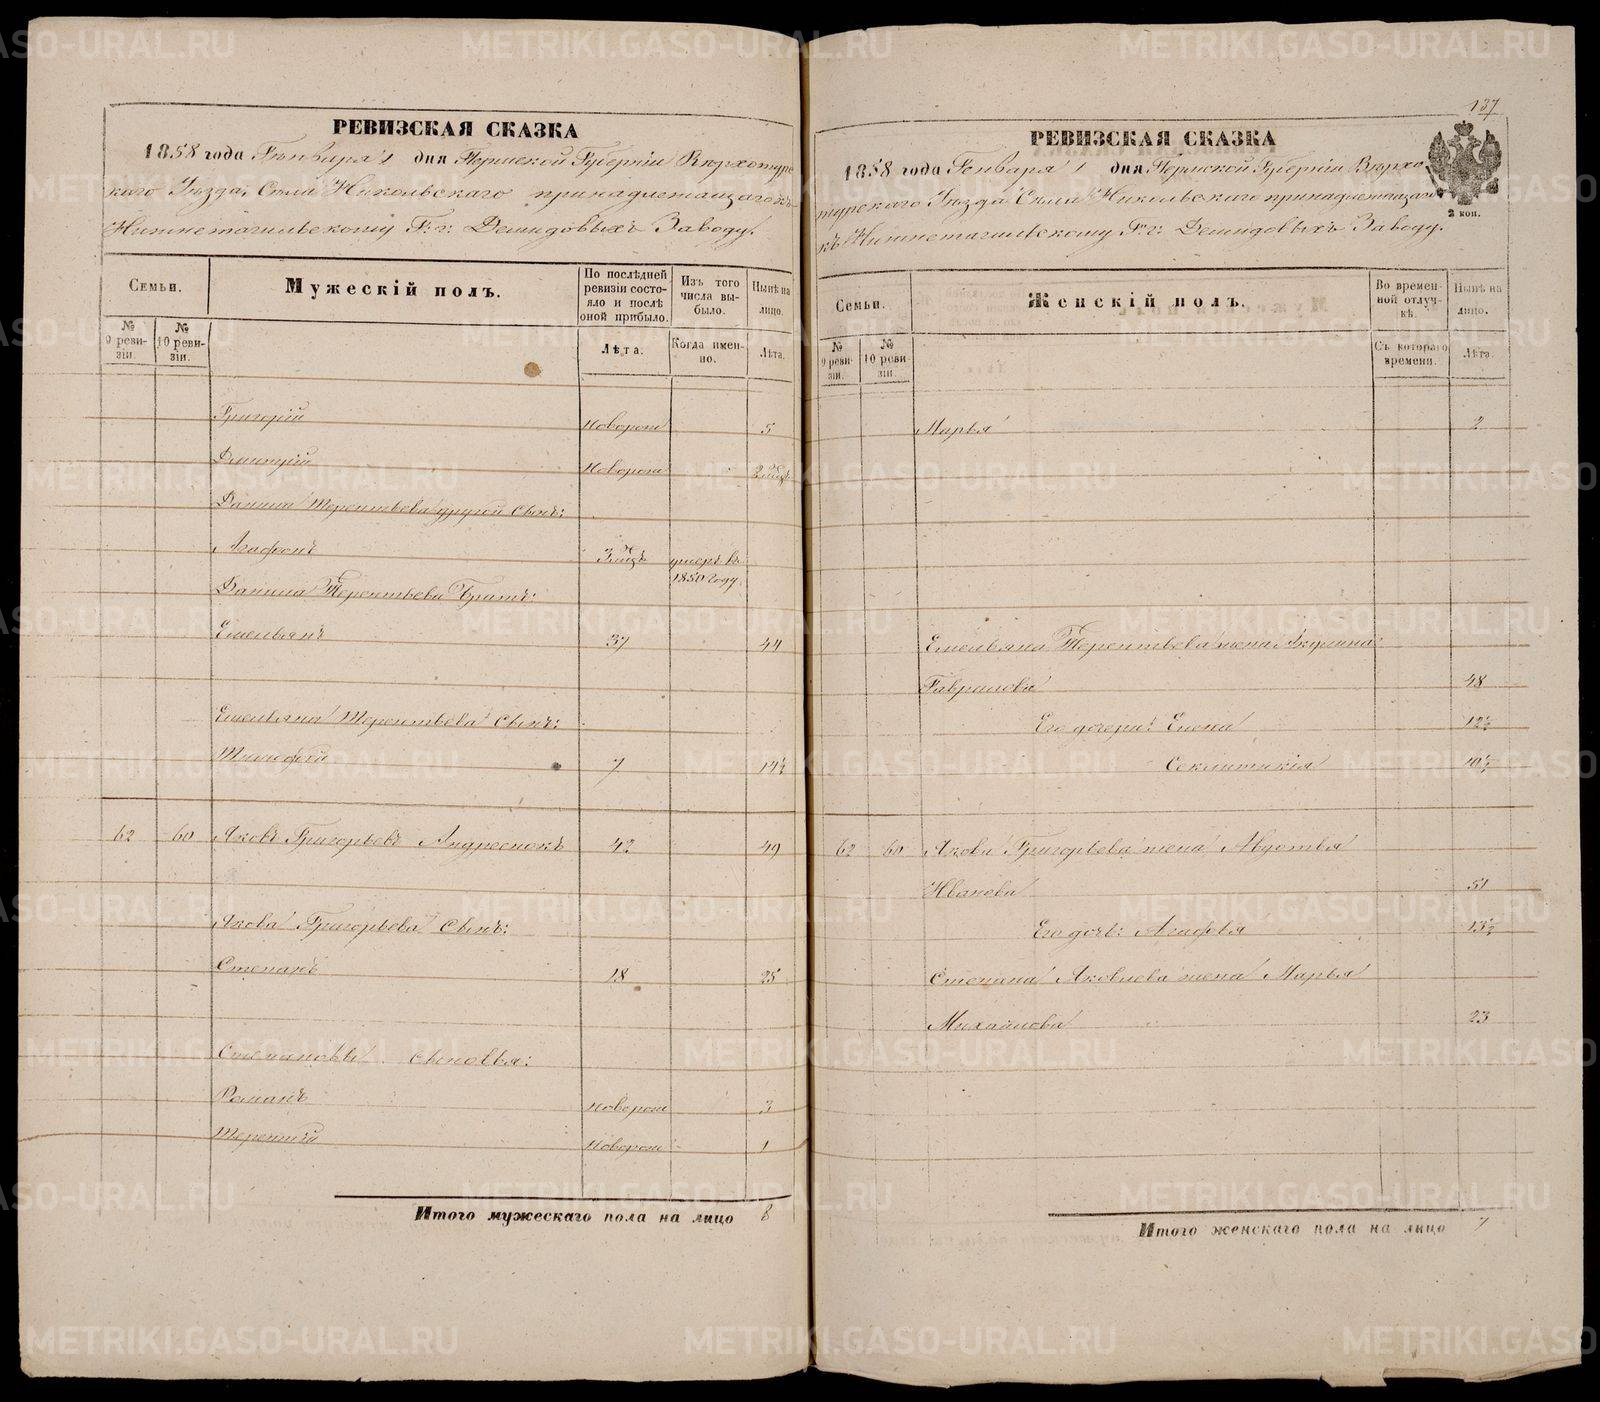 137
РЕВИЗСКАЯ СКАЗКА
1858 года Генваря 1 дня Пермской Губернiи Верхотурс-
каго Уѣзда, Села Никольскаго принадлежащаго къ
Нижнетагильскому Г.г. Демидовыхъ Заводу.
Семьи.
Мужескiй полъ.
По послѣдней ревизiи состояло и послѣ оной прибыло.
Изъ того числа выбыло.
Нынѣ на лицо.
№ 9 ревизiи.
№ 10 ревизiи.
Лѣта.
Когда именно.
Лѣта.
Григорiй новорож 5
Дмитрiй новорож 2 мцъ
Данила Терентьева другой Сынъ:
Агафонъ 3 мцъ умеръ въ
1850 году.
Данила Терентьева Братъ:
Емельянъ 37 44
Емельяна Терентьева Сынъ:
Тимофей 7 14½
62 60 Яковъ Григорьевъ 42 49
Якова Григорьева Сынъ:
Степанъ 18 25
Степановы Сыновья:
Романъ новорож 3
Терентiй новорож 1
Итого мужескаго пола на лицо 8
РЕВИЗСКАЯ СКАЗКА
1858 года Генваря 1 дня Пермской Губернiи Верхо-
турскаго Уѣзда Села Никольскаго принадлежащаго
къ Нижнетагильскому Г.г. Демидовыхъ Заводу.
2 коп.
Семьи.
Женскiй полъ.
Во временной отлучкѣ.
Нынѣ на лицо.
№ 9 ревизiи.
№ 10 ревизiи.
Съ котораго времени.
Лѣта.
Марья 2
Емельяна Терентьева жена Акулина
Гаврилова 48
Его дочери: Елена 12½
Секлитикiя 10½
62 60 Якова Григорьева жена Авдотья
Иванова 51
Его дочь: Агафья 13½
Степана Яковлева жена Марья
Михайлова 23
Итого женскаго пола на лицо 7
METRIKI.GASO-URAL.RU